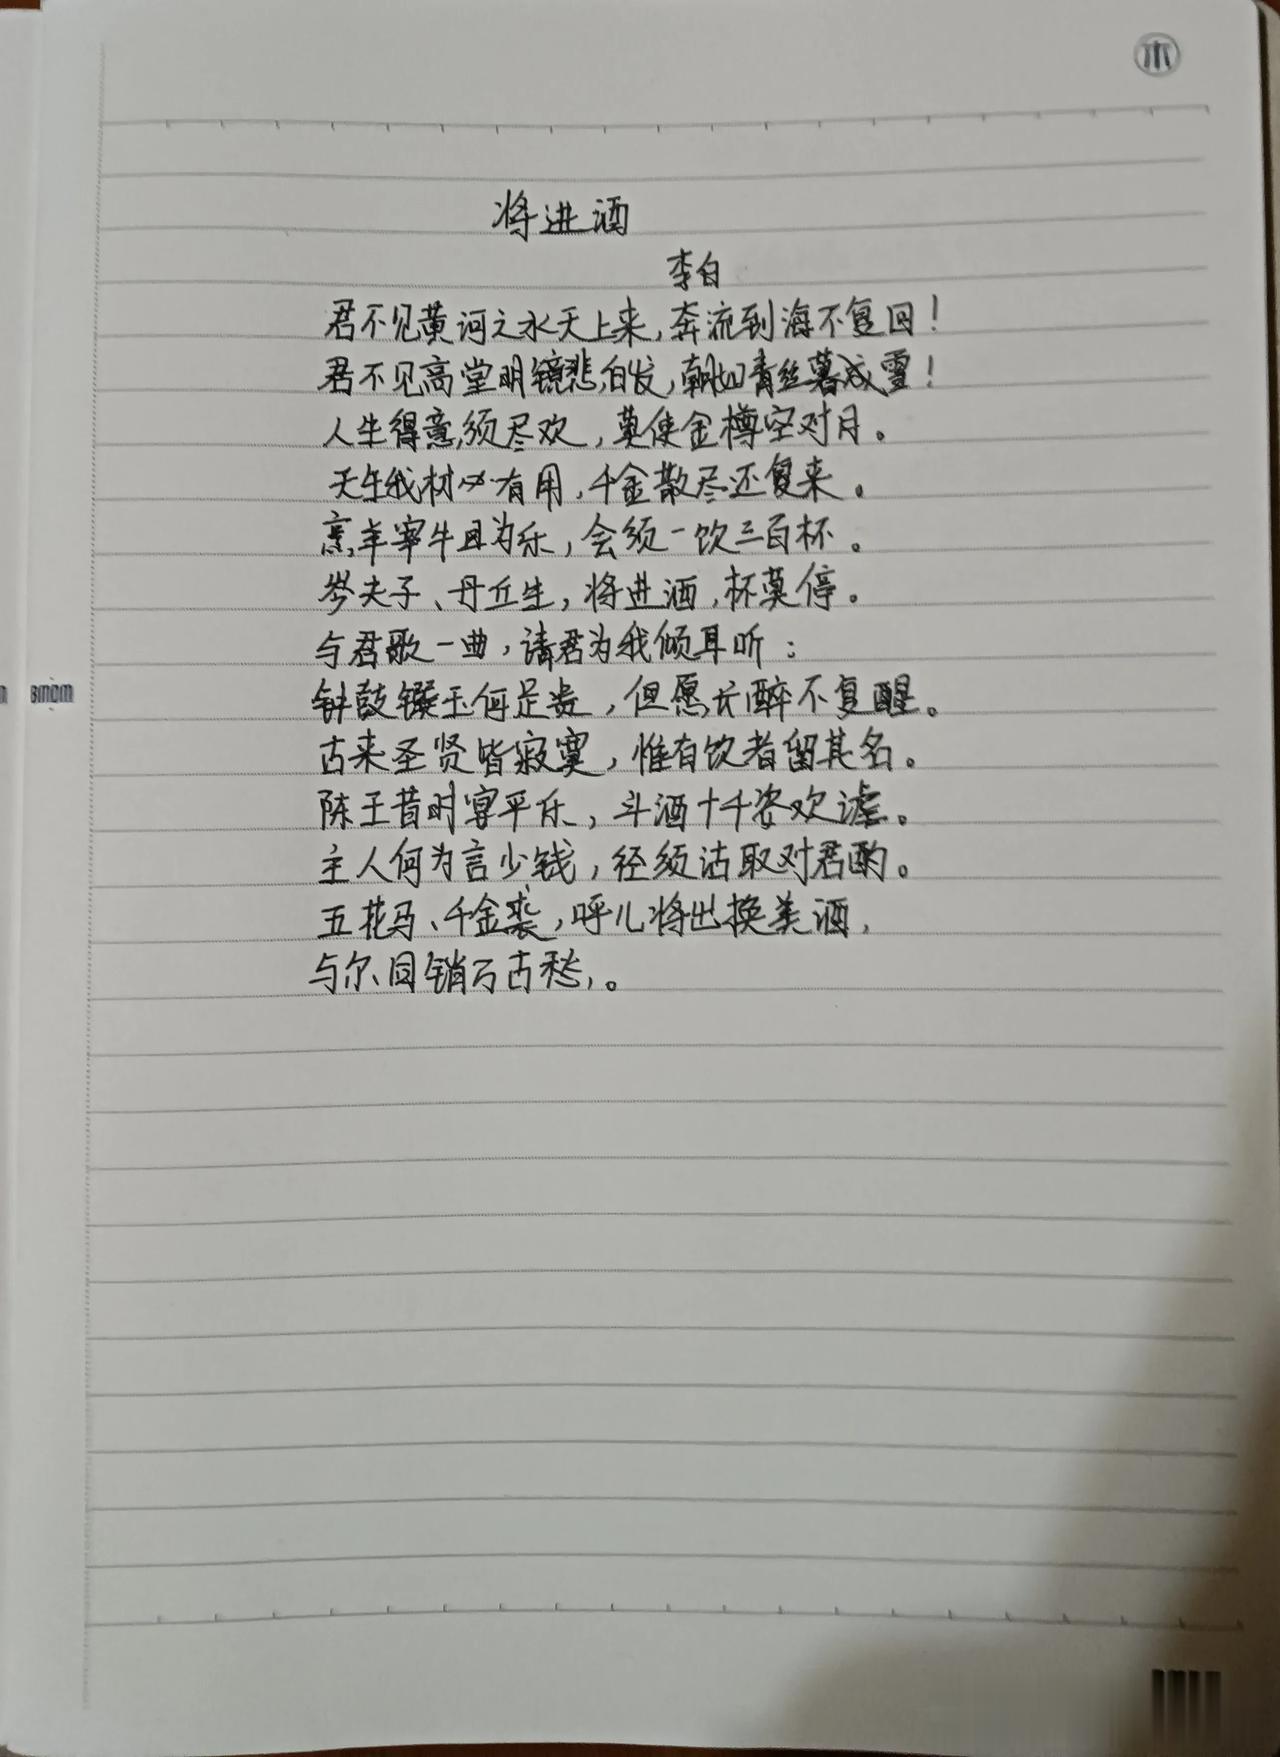 木
将进酒
李白
君不见黄河之水天上来,奔流到海不复回!
君不见高堂明镜悲白发,朝如青丝暮成雪!
人生得意须尽欢,莫使金樽空对月。
天生我材必有用,千金散尽还复来。
烹羊宰牛且为乐,会须一饮三百杯。
岑夫子、丹丘生,将进酒,杯莫停。
与君歌一曲,请君为我倾耳听:
钟鼓馔玉何足贵,但愿长醉不复醒。
古来圣贤皆寂寞,惟有饮者留其名。
陈王昔时宴平乐,斗酒十千恣欢谑。
主人何为言少钱,径须沽取对君酌。
五花马、千金裘,呼儿将出换美酒,
与尔同销万古愁,。